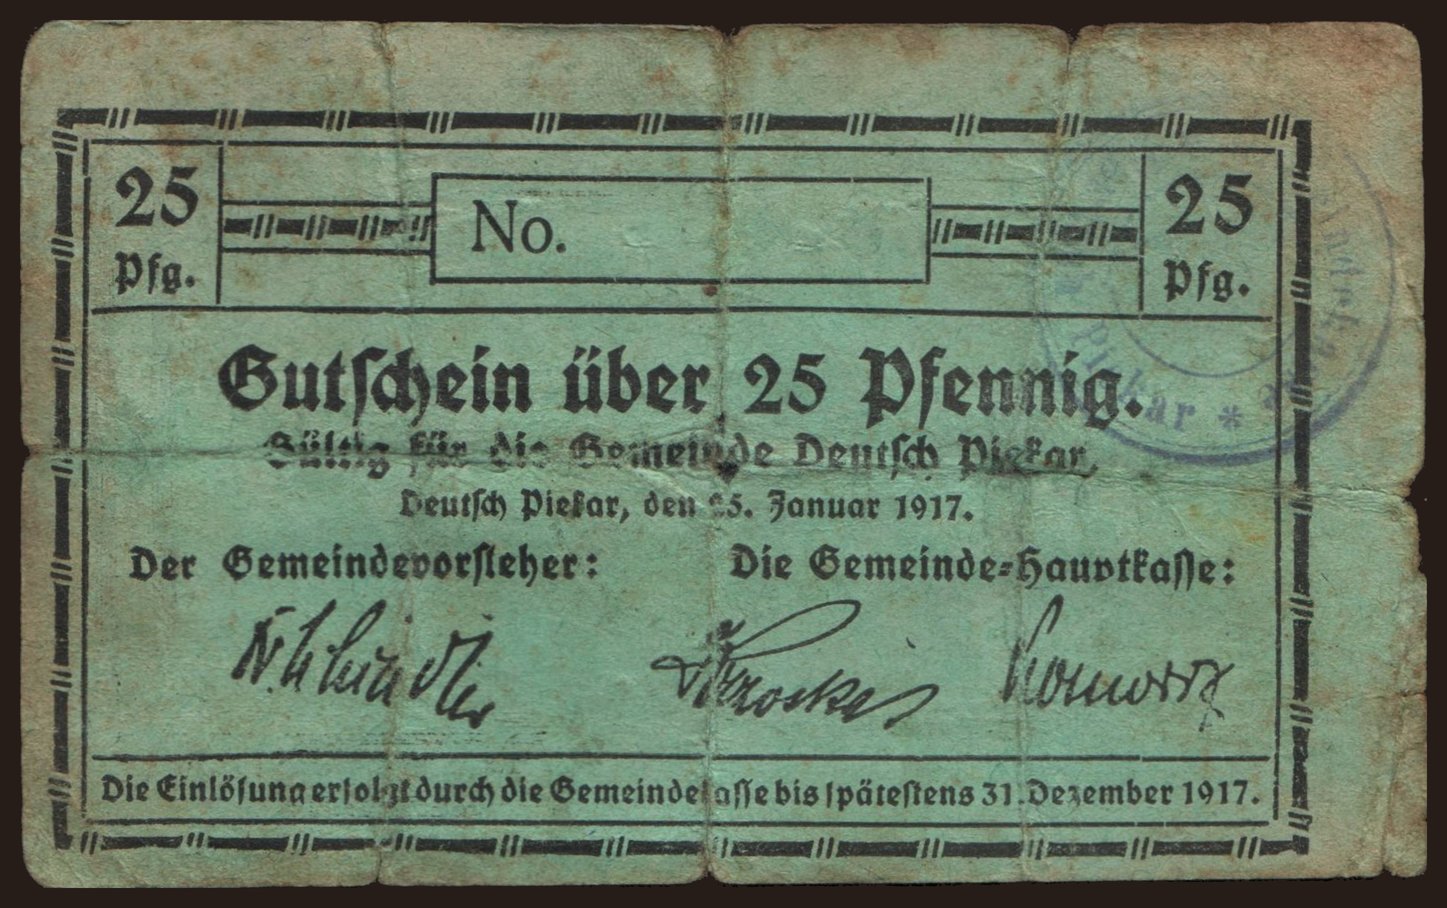 25 Pfg.
No.
25 Pfg.
Gutschein über 25 Pfennig.
Gültig für die Gemeinde Deutsch Piekar.
Deutsch Piekar, den 25. Januar 1917.
Der Gemeindevorsteher:
Die Gemeinde-Hauptkasse:
Die Einlösung erfolgt durch die Gemeindekasse bis spätestens 31. Dezember 1917.
Piekar *